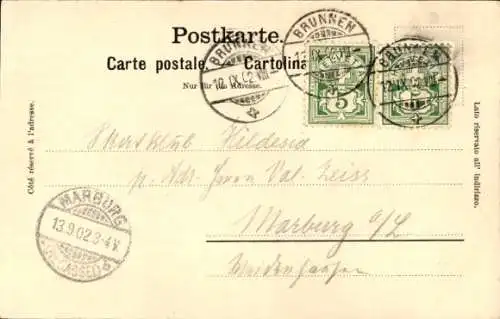 Postkarte.
Carte postale. Cartolina
Nur für die Adresse.
BRUNNEN
12.IX.02.VIII
BRUNNEN
BRUNNEN
12.IX.02.VIII
5
5
Côté réservé à l'adresse.
Lato riservato all' indirizzo.
Hildesia
p. Adr. Herrn Val. Zeiss
Marburg a/L
Weidenhausen
MARBURG
13.9.02.3-4.V.
(CASSEL)